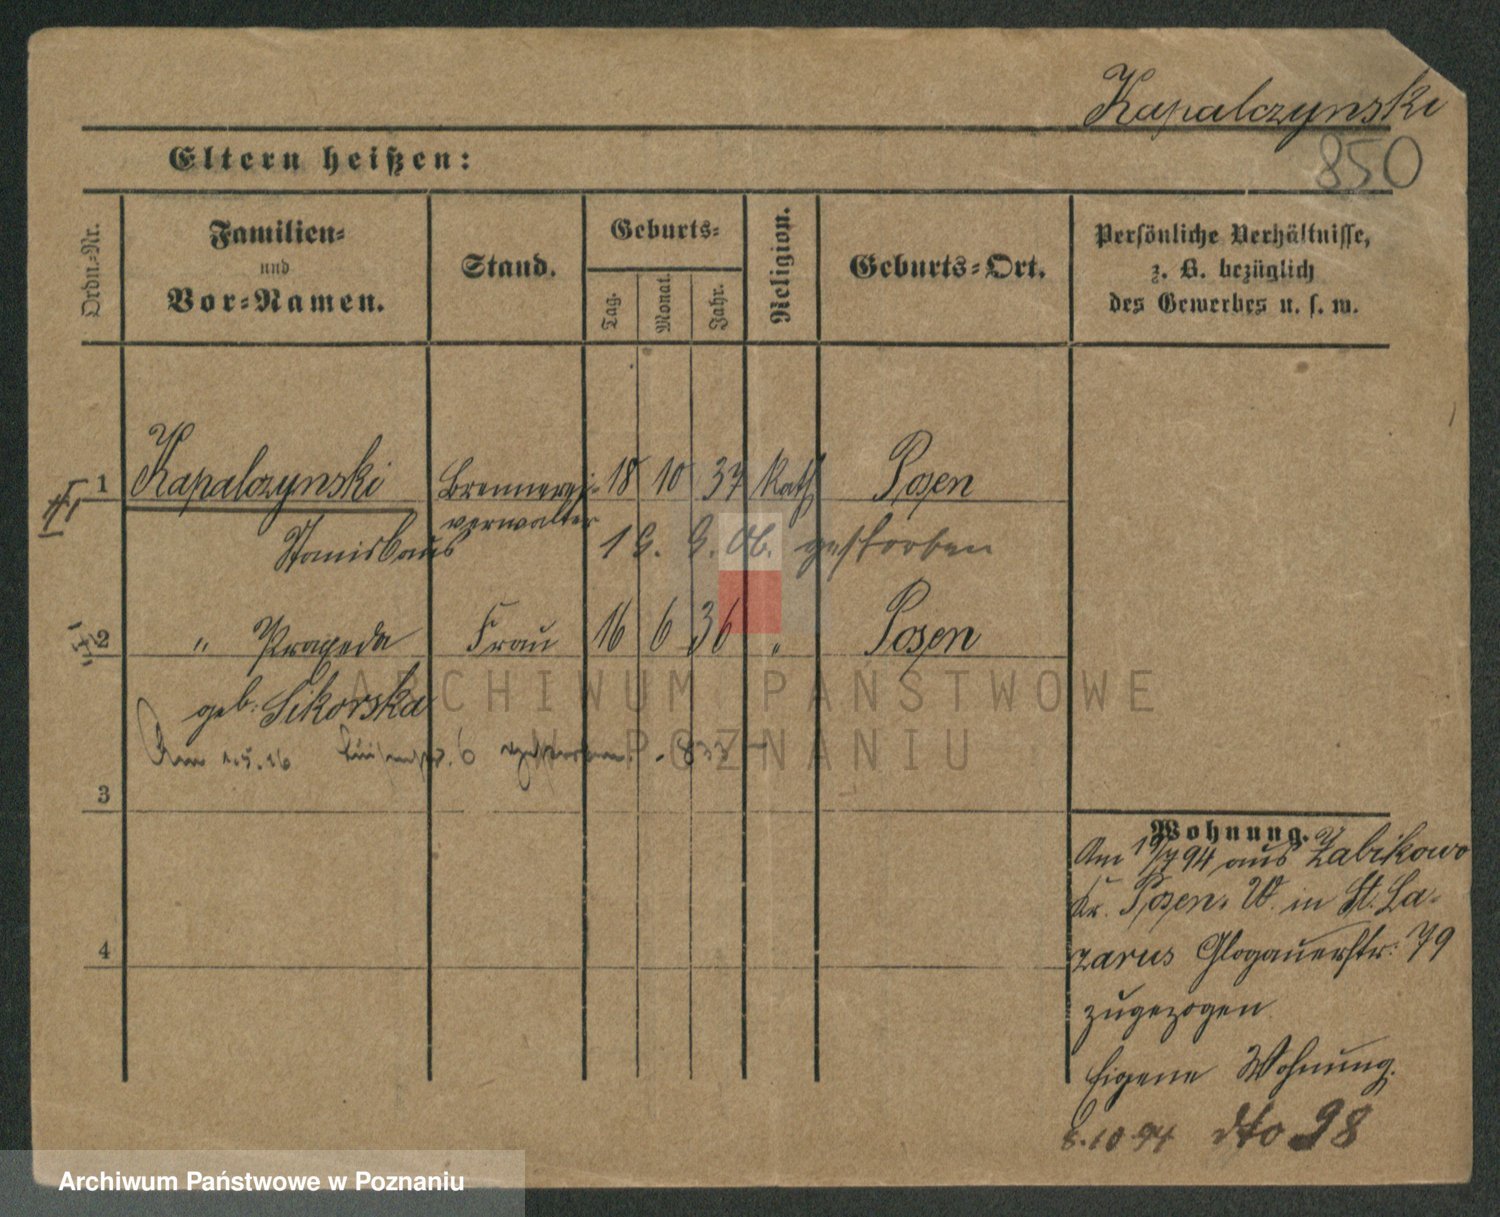 Kapalczynski
850
Eltern heißen:
Ordn.-Nr.
Familien-
und
Vor-Namen.
Stand.
Geburts-
Tag.
Monat.
Jahr.
Religion.
Geburts-Ort.
Persönliche Verhältnisse,
z. B. bezüglich
des Gewerbes u. s. w.
1 Kapalczynski Brennerei- 18 10 37 kath Posen
verwalter
Stanislaus
19. 9. 06. gestorben
2 " Praxeda Frau 16 6 36 " Posen
geb. Sikorska
Am 1.5.16 Luisenstr. 6 gestorben.
3
4
Wohnung.
Am 19/7 94 aus Zabikowo
Kr. Posen. W. in St. La-
zarus Glogauerstr. 79
zugezogen
Eigene Wohnung.
8.10 94 dto 98
ARCHIWUM PAŃSTWOWE
W POZNANIU
Archiwum Państwowe w Poznaniu